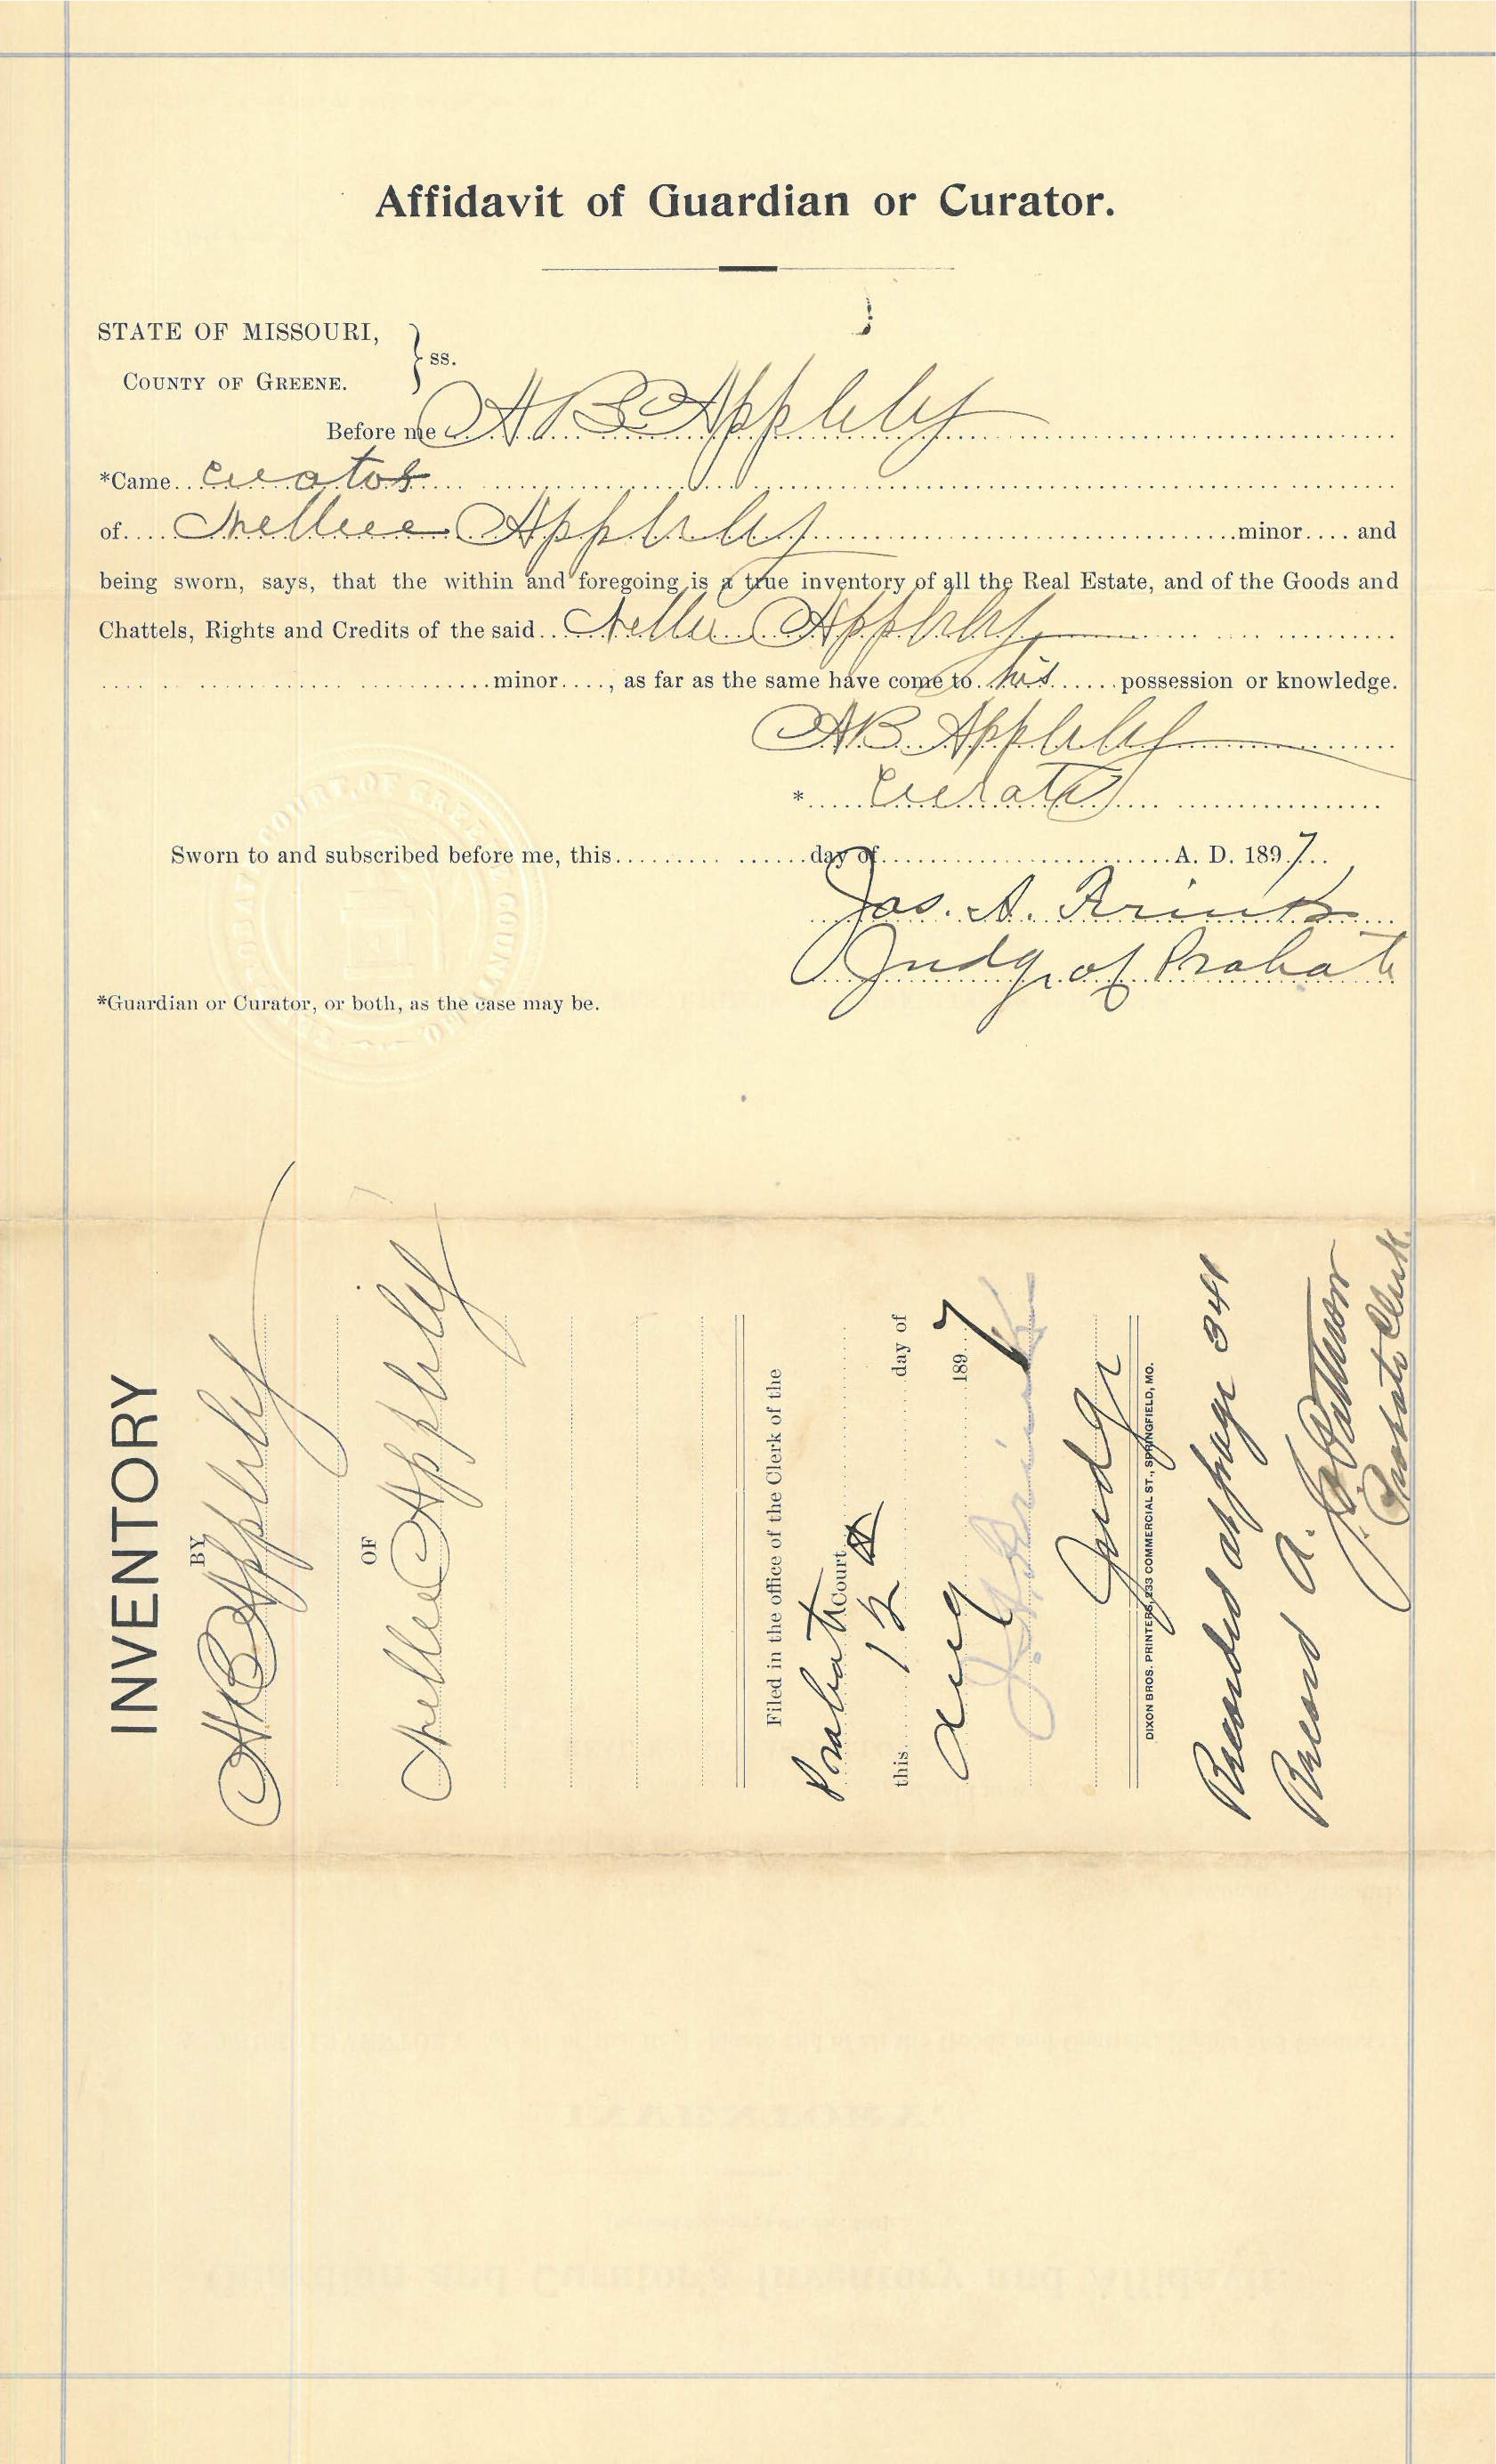 Affidavit of Guardian or Curator.
STATE OF MISSOURI,
COUNTY OF GREENE.
} ss.
Before me A B Appleby
*Came curator
of Nellie Appleby minor and
being sworn, says, that the within and foregoing is a true inventory of all the Real Estate, and of the Goods and
Chattels, Rights and Credits of the said Nellie Appleby
minor, as far as the same have come to his possession or knowledge.
AB Appleby
* Curator
Sworn to and subscribed before me, this day of A. D. 1897
Jas. A. Frink
Judge of Probate
*Guardian or Curator, or both, as the case may be.
PROBATE COURT OF GREENE COUNTY, MO.
INVENTORY
BY
AB Appleby
OF
Nellie Appleby
Filed in the office of the Clerk of the
Probate Court
this 12 day of
Aug 1897
J. A. Frink
Judge
DIXON BROS. PRINTERS, 233 COMMERCIAL ST., SPRINGFIELD, MO.
Recorded at page 341
Record A.
Patterson
Probate Clerk
INVENTORY.
Guardian and Curator's Inventory and Affidavit.